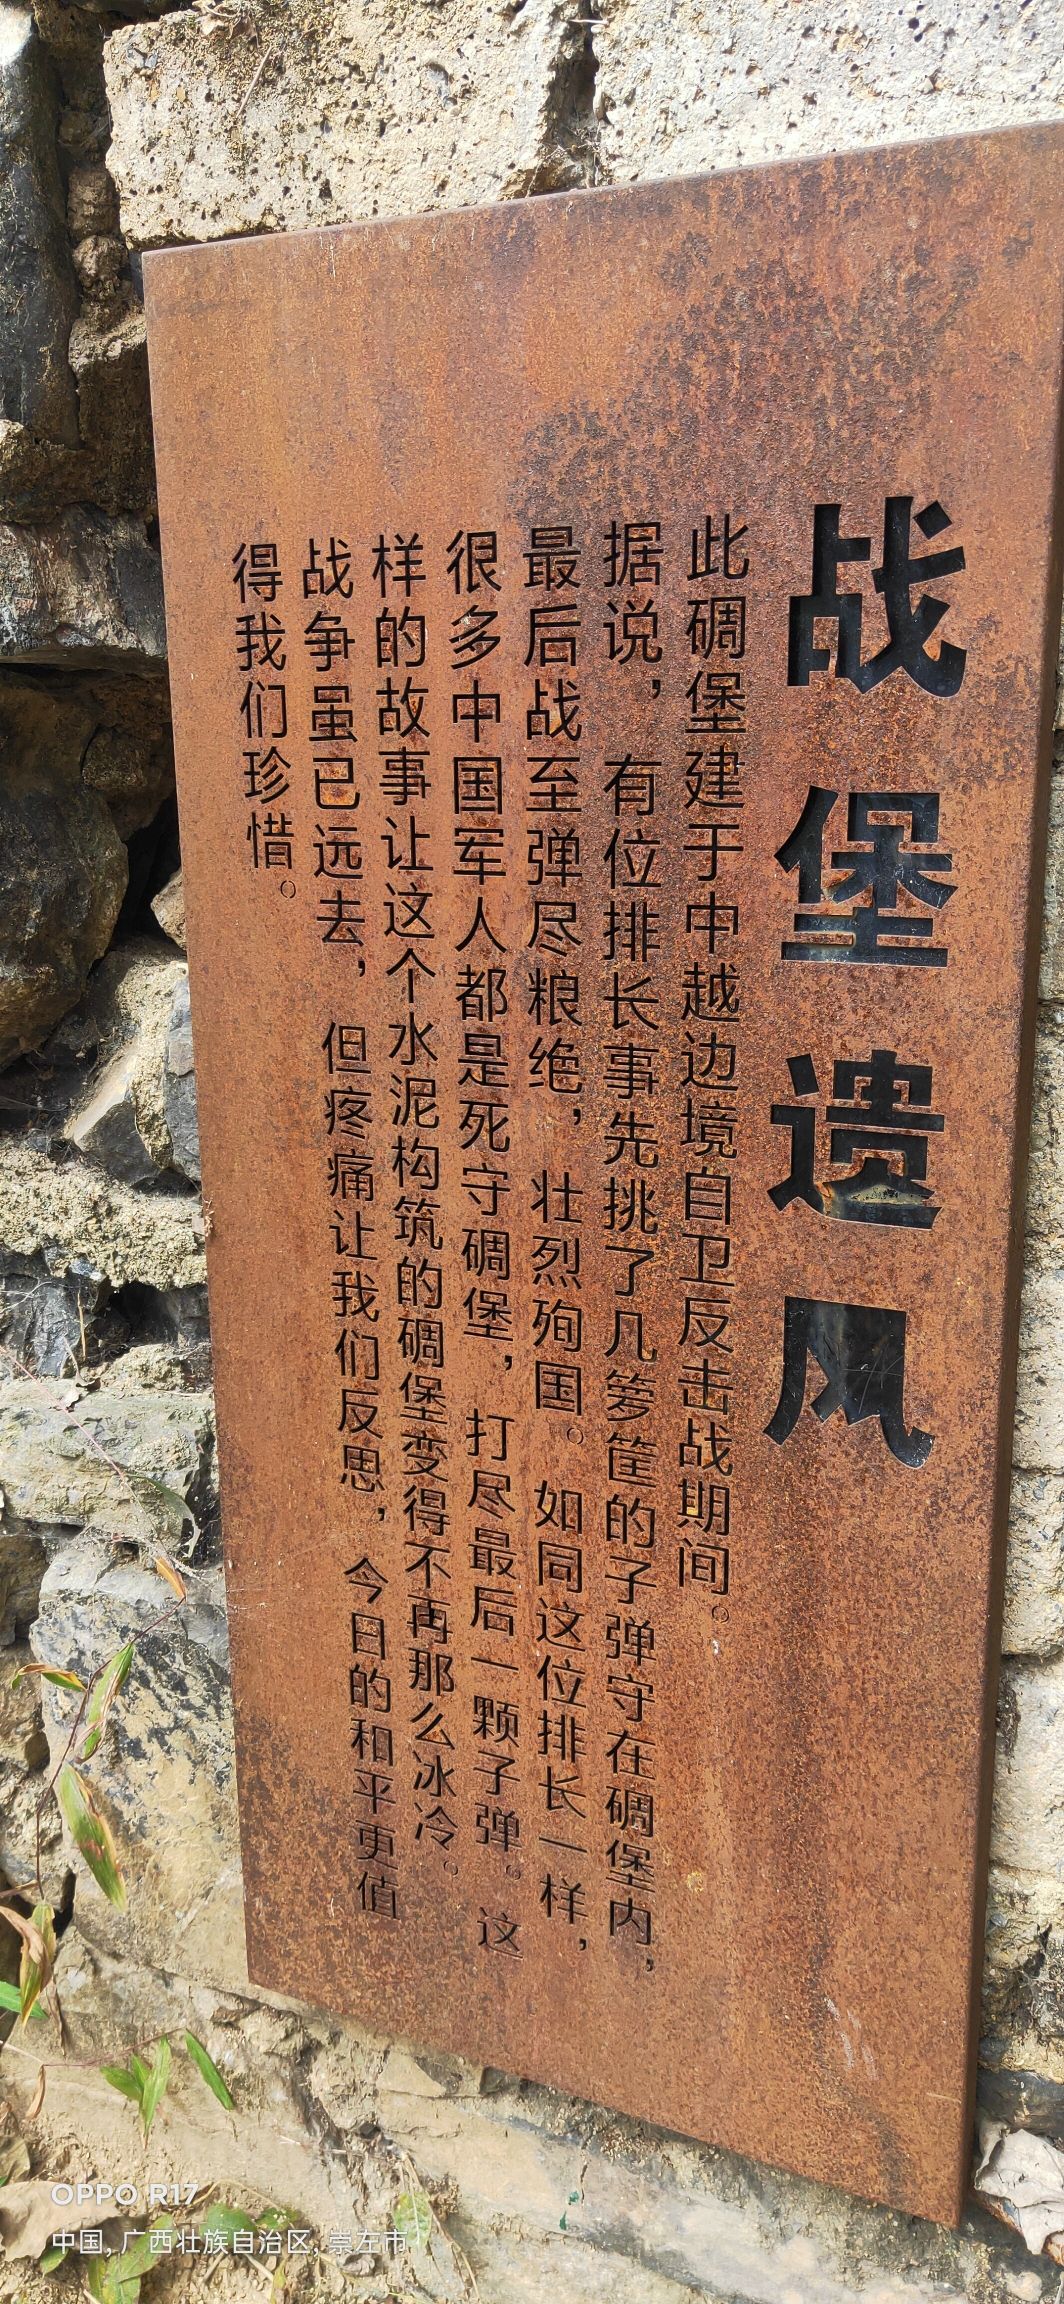 战堡遗风
此碉堡建于中越边境自卫反击战期间。
据说，有位排长事先挑了几箩筐的子弹守在碉堡内，
最后战至弹尽粮绝，壮烈殉国。如同这位排长一样，
很多中国军人都是死守碉堡，打尽最后一颗子弹。这
样的故事让这个水泥构筑的碉堡变得不再那么冰冷。
战争虽已远去，但疼痛让我们反思，今日的和平更值
得我们珍惜。
OPPO R17
中国, 广西壮族自治区, 崇左市